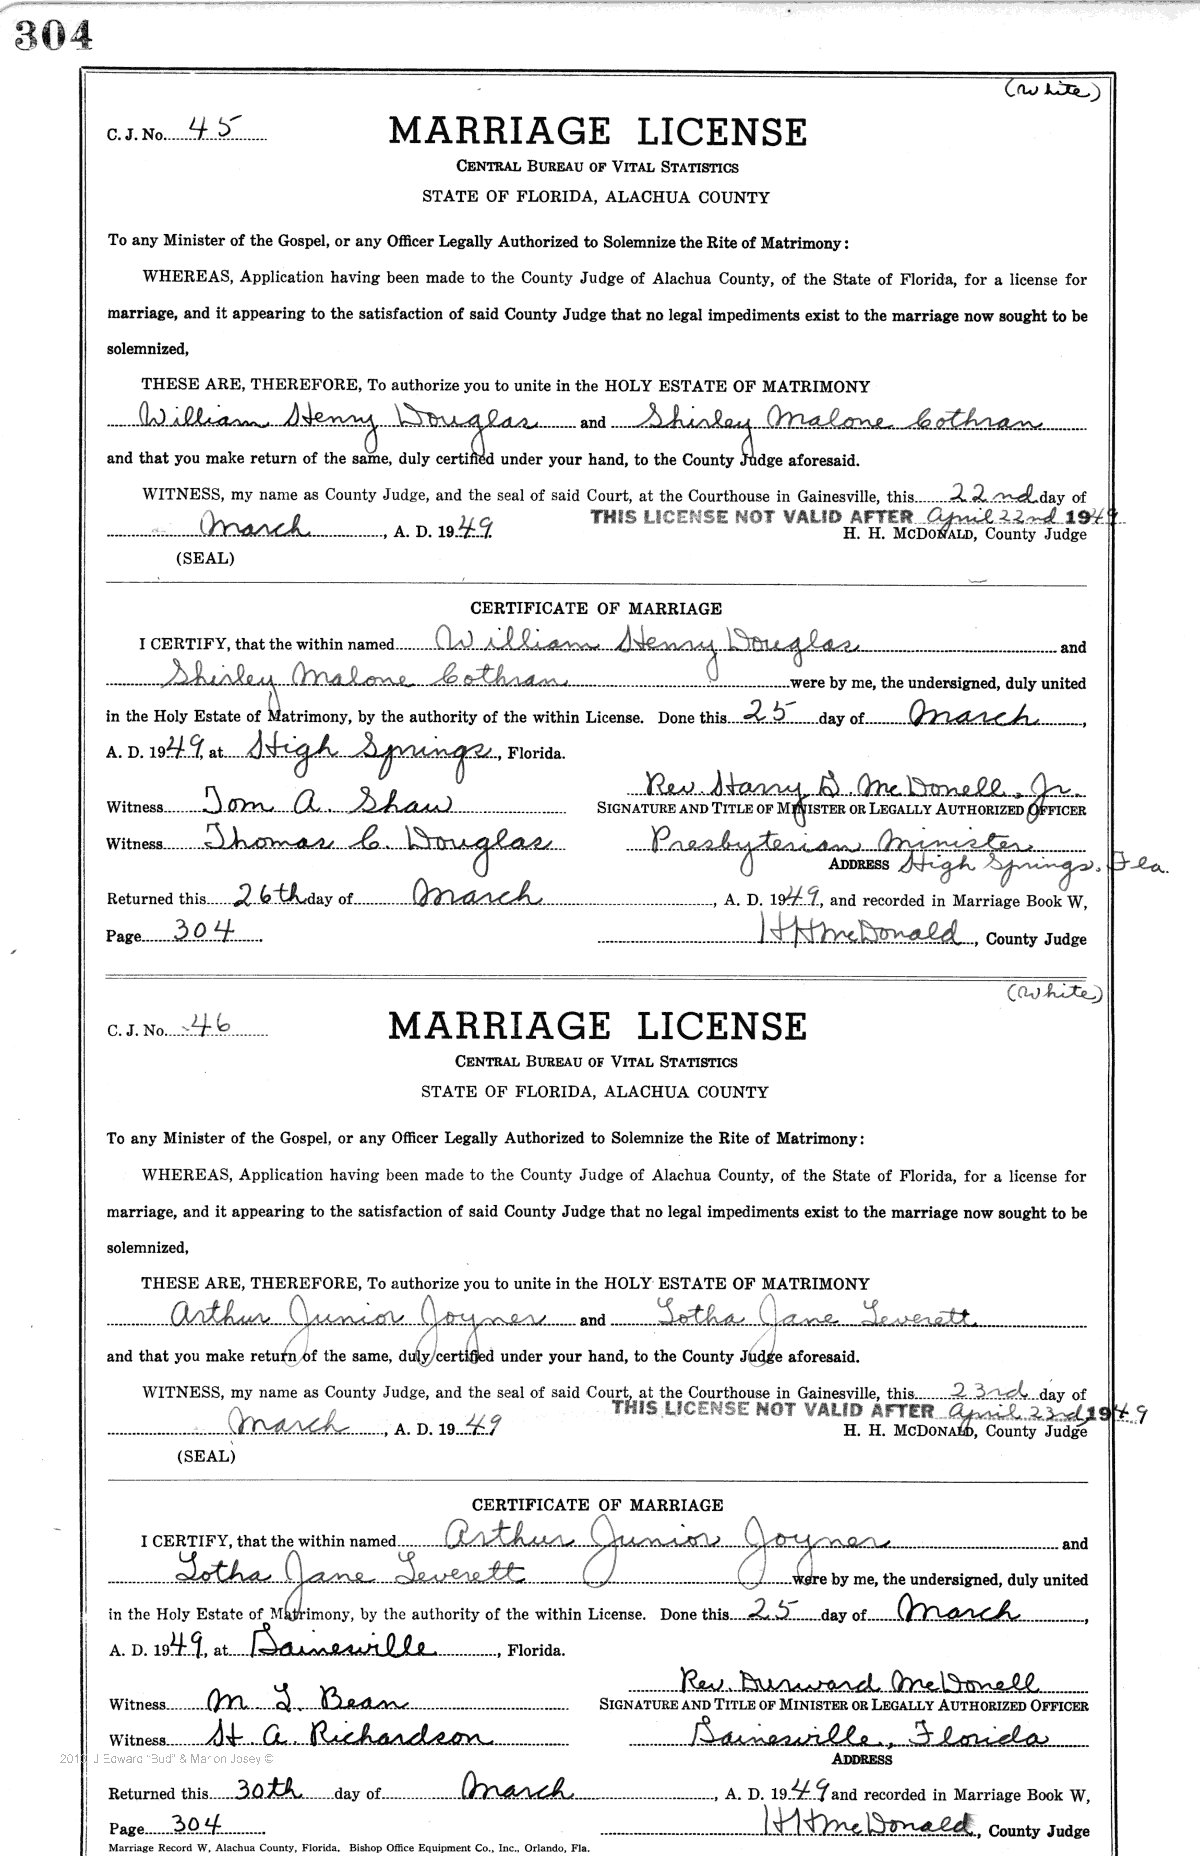 304
(White)
C. J. No. 45
MARRIAGE LICENSE
CENTRAL BUREAU OF VITAL STATISTICS
STATE OF FLORIDA, ALACHUA COUNTY
To any Minister of the Gospel, or any Officer Legally Authorized to Solemnize the Rite of Matrimony:
WHEREAS, Application having been made to the County Judge of Alachua County, of the State of Florida, for a license for
marriage, and it appearing to the satisfaction of said County Judge that no legal impediments exist to the marriage now sought to be
solemnized,
THESE ARE, THEREFORE, To authorize you to unite in the HOLY ESTATE OF MATRIMONY
William Henry Douglas and Shirley Malone Cothran
and that you make return of the same, duly certified under your hand, to the County Judge aforesaid.
WITNESS, my name as County Judge, and the seal of said Court, at the Courthouse in Gainesville, this 22nd day of
THIS LICENSE NOT VALID AFTER April 22nd 1949
March, A. D. 1949. H. H. McDONALD, County Judge
(SEAL)
CERTIFICATE OF MARRIAGE
I CERTIFY, that the within named William Henry Douglas and
Shirley Malone Cothran were by me, the undersigned, duly united
in the Holy Estate of Matrimony, by the authority of the within License. Done this 25 day of March,
A. D. 1949, at High Springs, Florida.
Rev. Harry G. McDonell, Jr.
Witness Tom A. Shaw SIGNATURE AND TITLE OF MINISTER OR LEGALLY AUTHORIZED OFFICER
Witness Thomas C. Douglas Presbyterian Minister
ADDRESS High Springs, Fla.
Returned this 26th day of March, A. D. 1949, and recorded in Marriage Book W,
Page 304. H H McDonald, County Judge
(White)
C. J. No. 46
MARRIAGE LICENSE
CENTRAL BUREAU OF VITAL STATISTICS
STATE OF FLORIDA, ALACHUA COUNTY
To any Minister of the Gospel, or any Officer Legally Authorized to Solemnize the Rite of Matrimony:
WHEREAS, Application having been made to the County Judge of Alachua County, of the State of Florida, for a license for
marriage, and it appearing to the satisfaction of said County Judge that no legal impediments exist to the marriage now sought to be
solemnized,
THESE ARE, THEREFORE, To authorize you to unite in the HOLY ESTATE OF MATRIMONY
Arthur Junior Joyner and Lotha Jane Leverett
and that you make return of the same, duly certified under your hand, to the County Judge aforesaid.
WITNESS, my name as County Judge, and the seal of said Court, at the Courthouse in Gainesville, this 23rd day of
THIS LICENSE NOT VALID AFTER April 23rd, 1949
March, A. D. 1949 H. H. McDONALD, County Judge
(SEAL)
CERTIFICATE OF MARRIAGE
I CERTIFY, that the within named Arthur Junior Joyner and
Lotha Jane Leverett were by me, the undersigned, duly united
in the Holy Estate of Matrimony, by the authority of the within License. Done this 25 day of March,
A. D. 1949, at Gainesville, Florida.
Rev. Durward McDonell
Witness M L Bean SIGNATURE AND TITLE OF MINISTER OR LEGALLY AUTHORIZED OFFICER
Witness H. A. Richardson Gainesville, Florida
J Edward "Bud" & Marion Josey © ADDRESS
Returned this 30th day of March, A. D. 1949 and recorded in Marriage Book W,
Page 304. H H McDonald, County Judge
Marriage Record W, Alachua County, Florida. Bishop Office Equipment Co., Inc., Orlando, Fla.